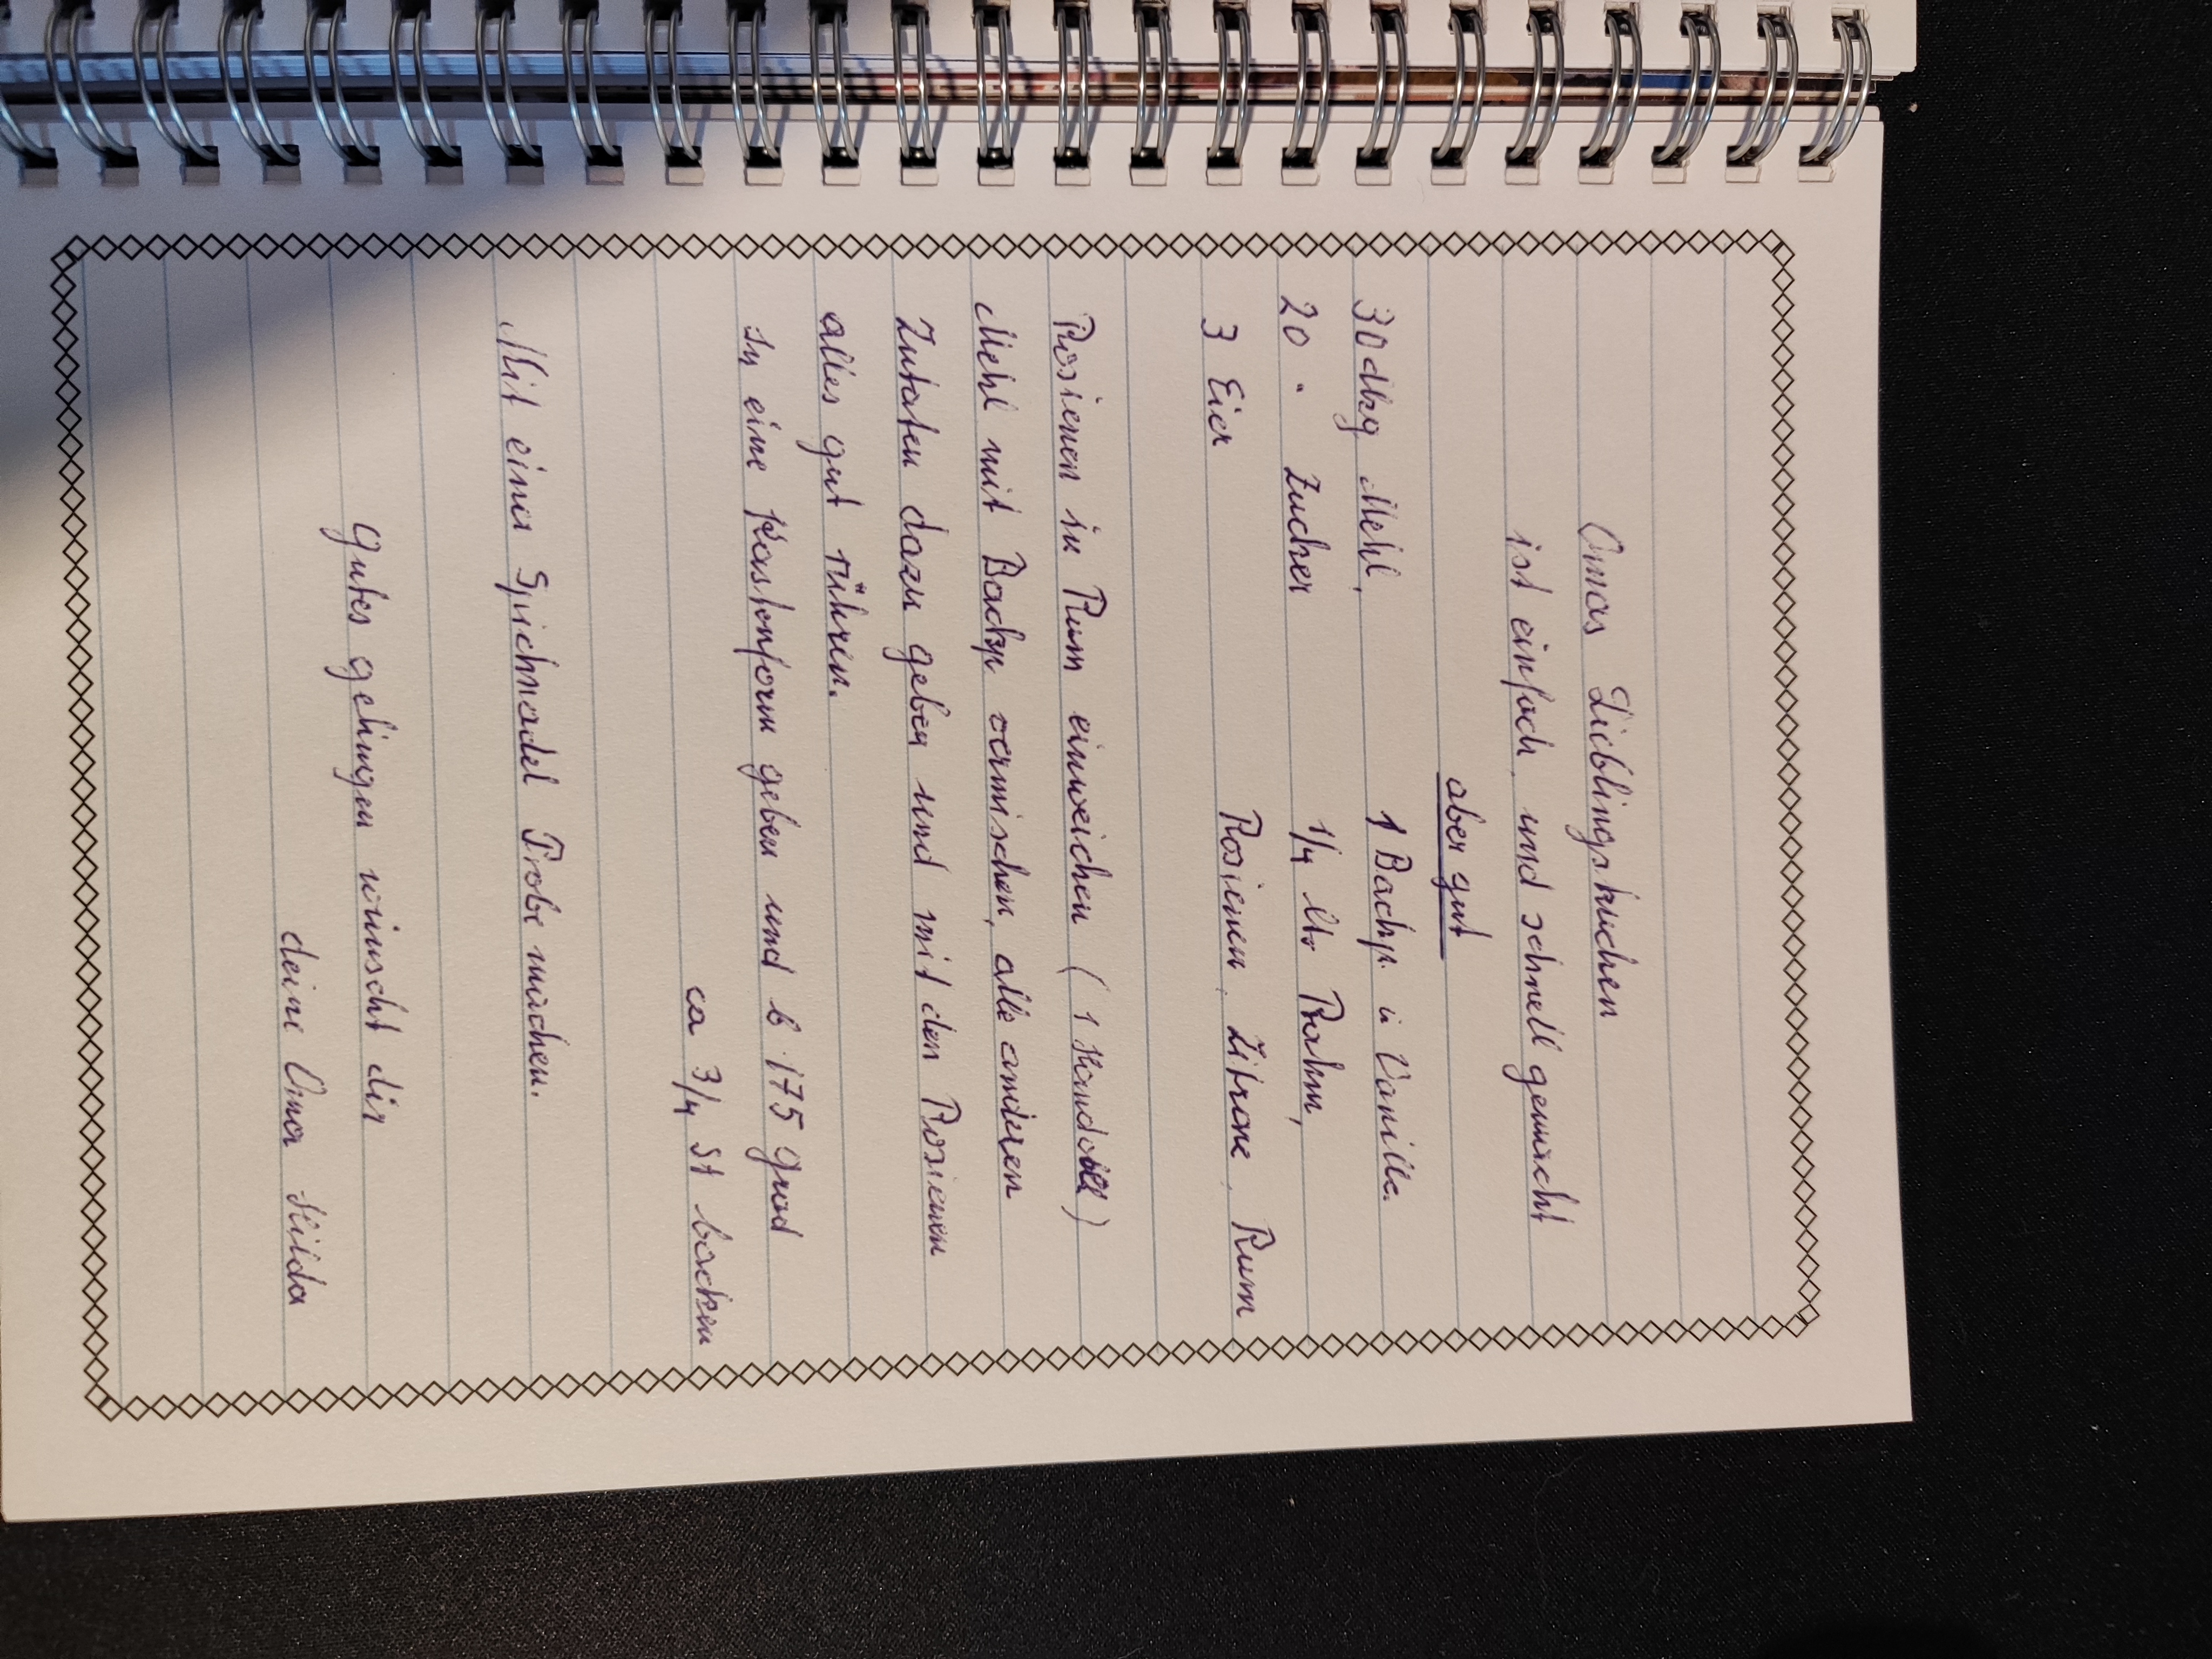 Omas Lieblingskuchen
ist einfach und schnell gemacht
aber gut
30 dkg Mehl, 1 Backp. u Vanille
20 " Zucker 1/4 ltr Rahm,
3 Eier Rosienen, Zitrone, Rum
Rosienen in Rum einweichen ( 1 Handvoll )
Mehl mit Backp vermischen, alle anderen
Zutaten dazu geben und mit den Rosienen
alles gut rühren.
In eine Kastenform geben und b 175 Grad
ca 3/4 St backen
Mit einer Spicknadel Probe machen.
Gutes gelingen wünscht dir
deine Oma Hilda